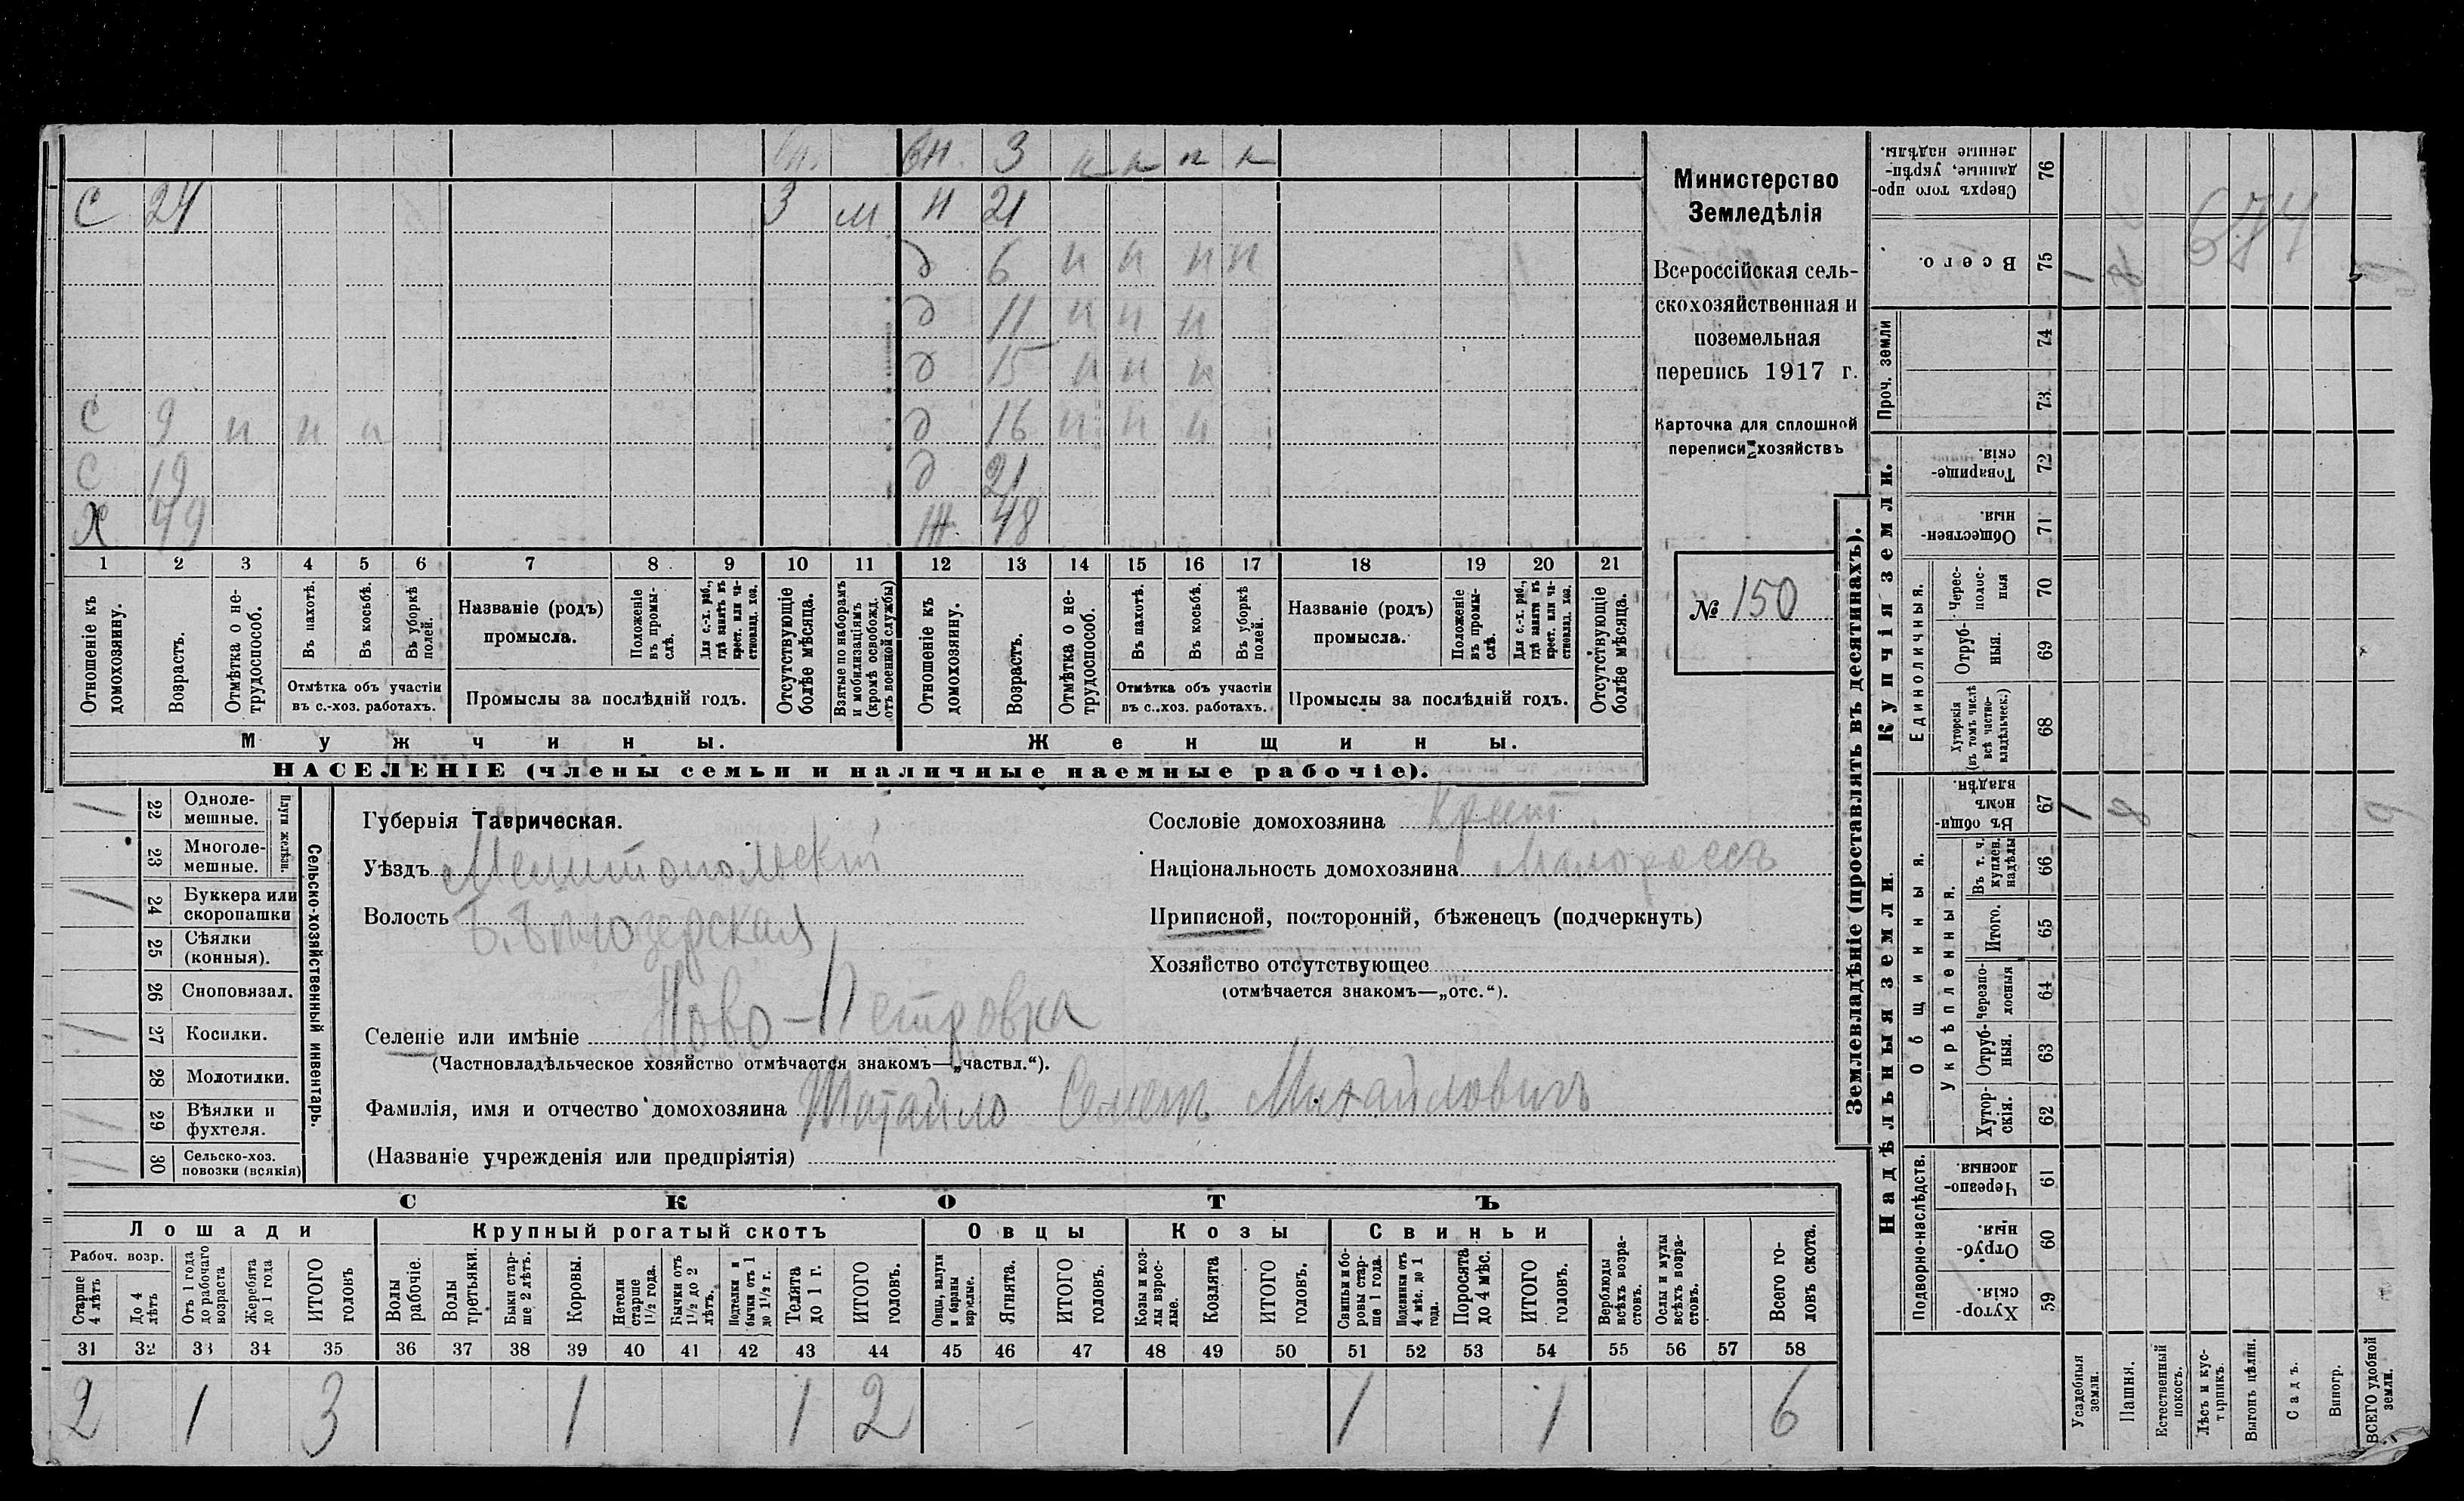 Министерство
Земледѣлія
Всероссійская сель-
скохозяйственная и
поземельная
перепись 1917 г.
Карточка для сплошной
переписи хозяйствъ
№ 150
вн. 3 н н н н
С 24 3 м н 21
д 6 н н н н
д 11 н н н
д 15 н н н
С 9 н н н д 16 н н н
С 19 д 21
Х 49 Ж 48
1 2 3 4 5 6 7 8 9 10 11 12 13 14 15 16 17 18 19 20 21
Отношеніе къ домохозяину.
Возрастъ.
Отмѣтка о не-трудоспособ.
Въ пахотѣ.
Въ косьбѣ.
Въ уборкѣ полей.
Отмѣтка объ участіи въ с.-хоз. работахъ.
Названіе (родъ) промысла.
Положеніе въ промы-слѣ.
Для с.-х. раб., гдѣ занятъ въ крест. или ча-стновлад. хоз.
Промыслы за послѣдній годъ.
Отсутствующіе болѣе мѣсяца.
Взятые по наборамъ и мобилизаціямъ (кромѣ освобожд. отъ военной службы)
Отношеніе къ домохозяину.
Возрастъ.
Отмѣтка о не-трудоспособ.
Въ пахотѣ.
Въ косьбѣ.
Въ уборкѣ полей.
Отмѣтка объ участіи въ с.-хоз. работахъ.
Названіе (родъ) промысла.
Положеніе въ промы-слѣ.
Для с.-х. раб., гдѣ занятъ въ крест. или ча-стновлад. хоз.
Промыслы за послѣдній годъ.
Отсутствующіе болѣе мѣсяца.
Мужчины. Женщины.
НАСЕЛЕНІЕ (члены семьи и наличные наемные рабочіе).
Сельско-хозяйственный инвентарь.
Плуги желѣзн.
1 22 Одноле-мешные.
23 Многоле-мешные.
1 24 Буккера или скоропашки
25 Сѣялки (конныя).
26 Сноповязал.
1 27 Косилки.
28 Молотилки.
1 29 Вѣялки и фухтеля.
1 30 Сельско-хоз. повозки (всякія)
Губернія Таврическая.
Уѣздъ Мелитопольскій
Волость Б. Бѣлозерская
Селеніе или имѣніе Ново-Петровка
(Частновладѣльческое хозяйство отмѣчается знакомъ—„частвл.“).
Фамилія, имя и отчество домохозяина Шатайло Семенъ Михайловичъ
(Названіе учрежденія или предпріятія)
Сословіе домохозяина Крест.
Національность домохозяина Малороссъ
Приписной, посторонній, бѣженецъ (подчеркнуть)
Хозяйство отсутствующее
(отмѣчается знакомъ—„отс.“).
СКОТЪ
Лошади Крупный рогатый скотъ Овцы Козы Свиньи
Рабоч. возр.
Старше 4 лѣтъ
До 4 лѣтъ
Отъ 1 года до рабочаго возраста
Жеребята до 1 года
ИТОГО головъ
Волы рабочіе.
Волы третьяки.
Быки стар-ше 2 лѣтъ.
Коровы.
Нетели старше 1½ года.
Бычки отъ 1½ до 2 лѣтъ.
Подтелки и бычки отъ 1 до 1½ г.
Телята до 1 г.
ИТОГО головъ.
Овцы, валухи и бараны взрослые.
Ягнята.
ИТОГО головъ.
Козы и коз-лы взрос-лые.
Козлята
ИТОГО головъ.
Свиньи и бо-ровы стар-ше 1 года.
Подсвинки отъ 4 мѣс. до 1 года.
Поросята до 4 мѣс.
ИТОГО головъ.
Верблюды всѣхъ возра-стовъ.
Ослы и мулы всѣхъ возра-стовъ.
Всего го-ловъ скота.
31 32 33 34 35 36 37 38 39 40 41 42 43 44 45 46 47 48 49 50 51 52 53 54 55 56 57 58
2 1 3 1 1 2 - 1 1 6
Землевладѣніе (проставлять въ десятинахъ).
Купчія земли.
Надѣльныя земли.
Сверхъ того про-данные, укрѣп-ленные надѣлы. 76
Всего. 75 1 8
674
Проч. земли 74
73
Товарище-скія. 72
Обществен-ныя. 71
Единоличныя.
Черес-полос-ныя 70
Отруб-ныя. 69
Хуторскія (въ томъ числѣ всѣ частно-владѣльческ.) 68
Общинныя.
Въ общи-номъ владѣн. 67 1 8 9
Укрѣпленныя.
Въ т. ч. куплен. надѣлы 66
Итого. 65
Черезпо-лосныя 64
Отруб-ныя. 63
Хутор-скія. 62
Подворно-наслѣдств.
Черезпо-лосныя. 61
Отруб-ныя. 60
Хутор-скія. 59
Усадебная земли.
Пашня.
Естественный покосъ.
Лѣсъ и кус-тарникъ.
Выгонъ цѣлин.
Садъ.
Виногр.
ВСЕГО удобной земли.